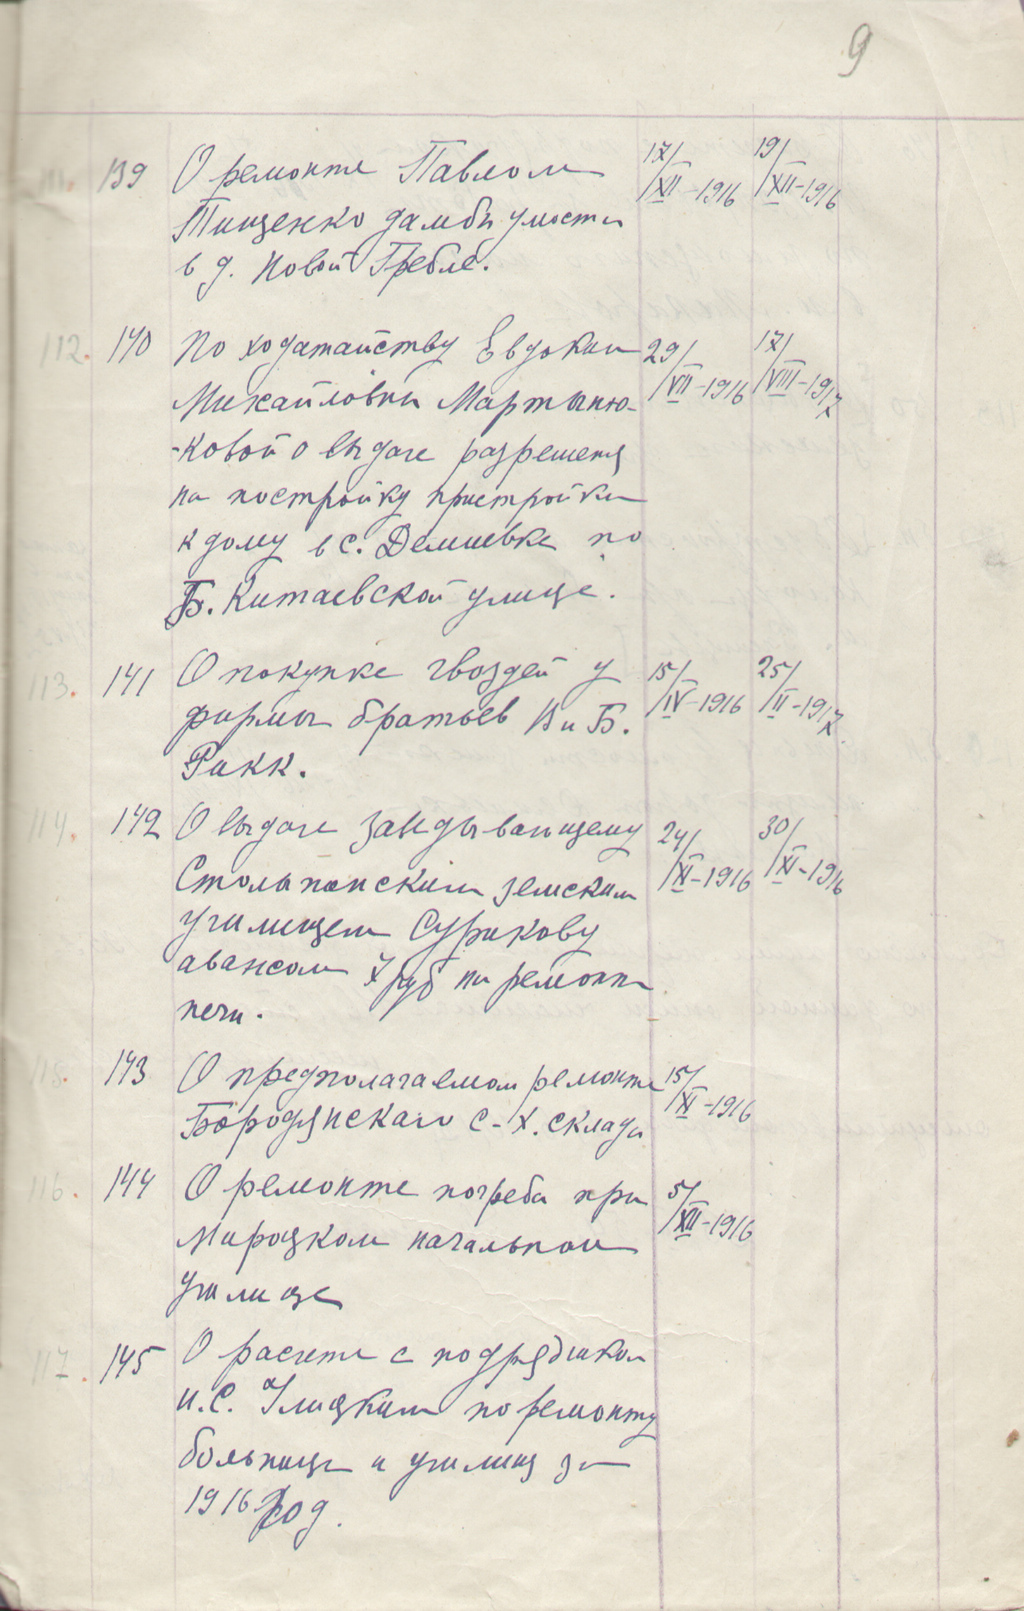 9
111. 139 О ремонте Павлом 17/XII-1916 19/XII-1916
Тищенко дамбы у моста
в д. Новой Гребле.
112. 140 По ходатайству Евдокии 29/VII-1916 17/VIII-1917
Михайловны Мартыню-
-ковой о выдаче разрешения
на постройку пристройки
к дому в с. Демиевке по
Б. Китаевской улице.
113. 141 О покупке гвоздей у 15/IV-1916 25/II-1917
фирмы братьев В и Б.
Ракк.
114. 142 О выдаче заведывающему 24/XI-1916 30/XI-1916
Столыпинским земским
училищем Сурикову
авансом 7 руб на ремонт
печи.
115. 143 О предполагаемом ремонте 15/XI-1916
Бородянского с-х. склада
116. 144 О ремонте погреба при 5/XII-1916
Мироцком начальном
училище
117. 145 О расчете с подрядчиком
И.С. Улицким по ремонту
больницы и училищ за
1916 год.